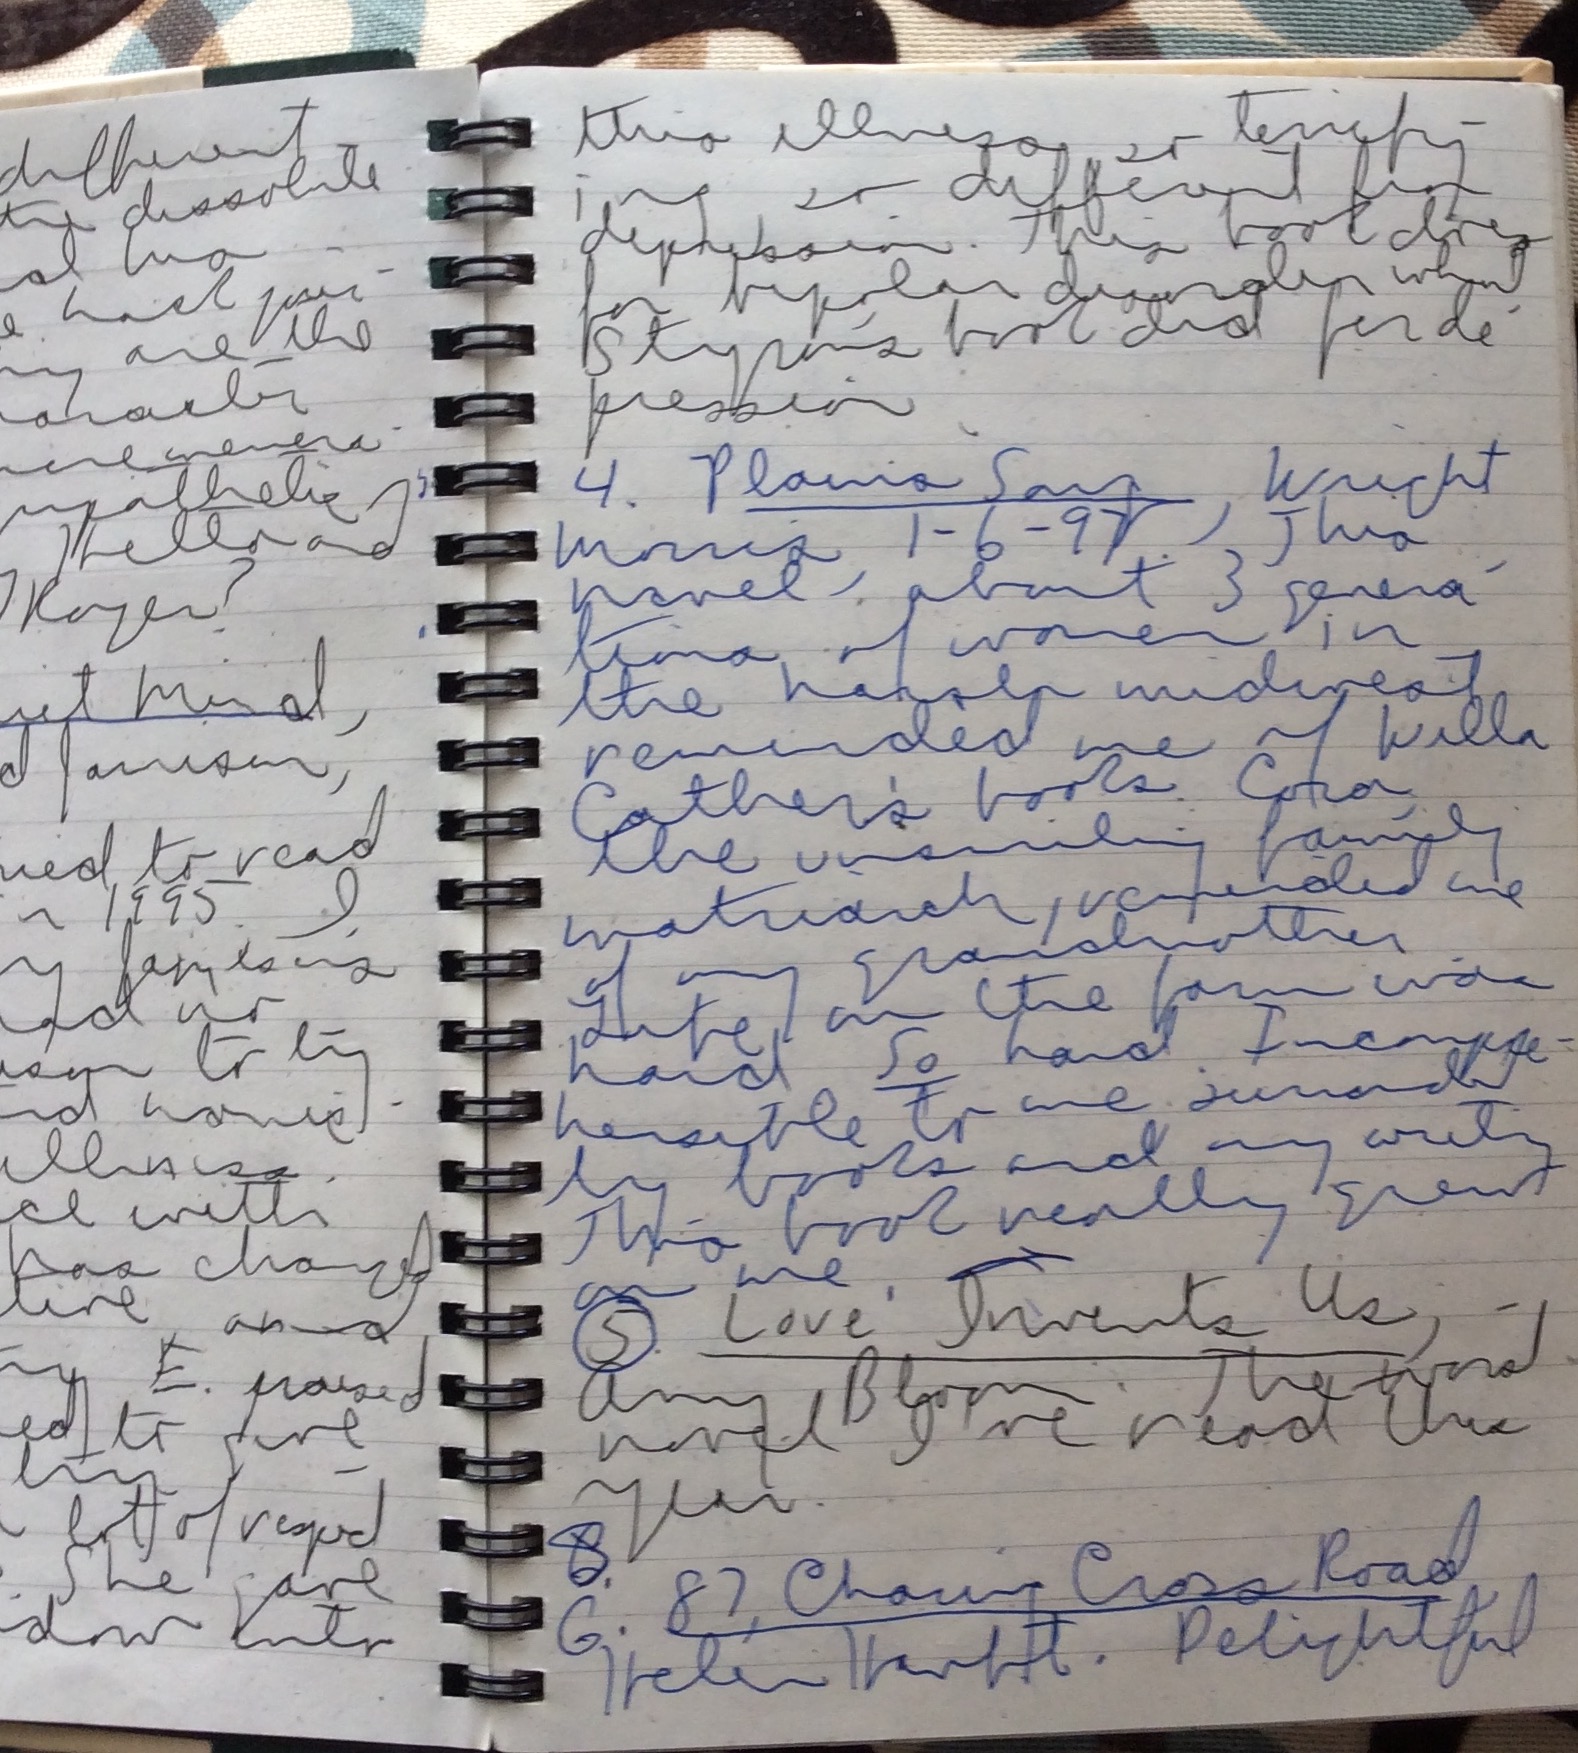 different
the dissolute
had just
are the
character
sympathetic
Hello and
Roger?
Mind,
Jamison,
to read
in 1995. I
Jamison's
had no
to try
illness.
with
has changed
and
E. praised
to give
lot of respect
She gave
window into
this illness, so terrify-
ing so different from
depression. This book does
for bipolar disorder what
Styron's book did for de-
pression
4. Plains Song, Wright
Morris, 1-6-97, This
novel, about 3 genera-
tions of women in
the harsh midwest
reminded me of Willa
Cather's books. Cora,
the unsmiling family
matriarch, reminded me
of my grandmother
Life on the farm was
hard So hard. Incompre-
hensible to me surrounded
by books and my writing
This book really grew
on me.
5. Love Invents Us,
Amy Bloom. The worst
novel I've read this
year.
8.
6. 87, Charing Cross Road
Helen Hanff. Delightful